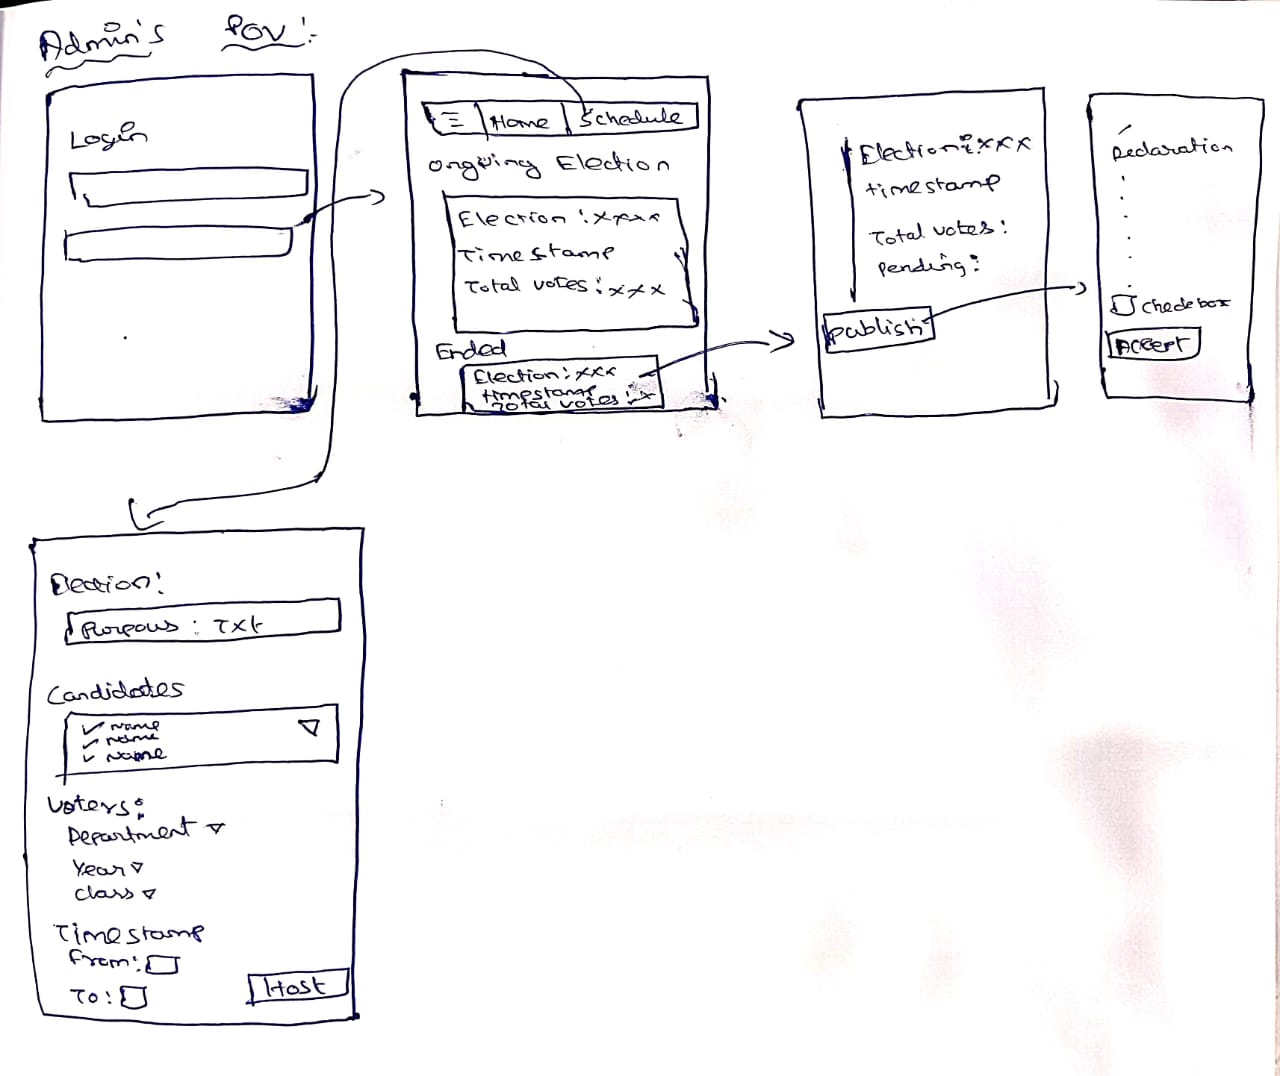 Admin's POV:-
Login
Home Schedule
Ongoing Election
Election : xxxx
Timestamp
Total votes : xxx
Ended
Election : xxx
timestamp
Total votes : x
Election : xxx
timestamp
Total votes :
pending :
publish
Declaration
checkbox
Accept
Election :
Purpous : Txt
Candidates
✓ name
✓ name
✓ Name
Voters :
Department ▽
Year ▽
class ▽
Timestamp
From :
To :
Host